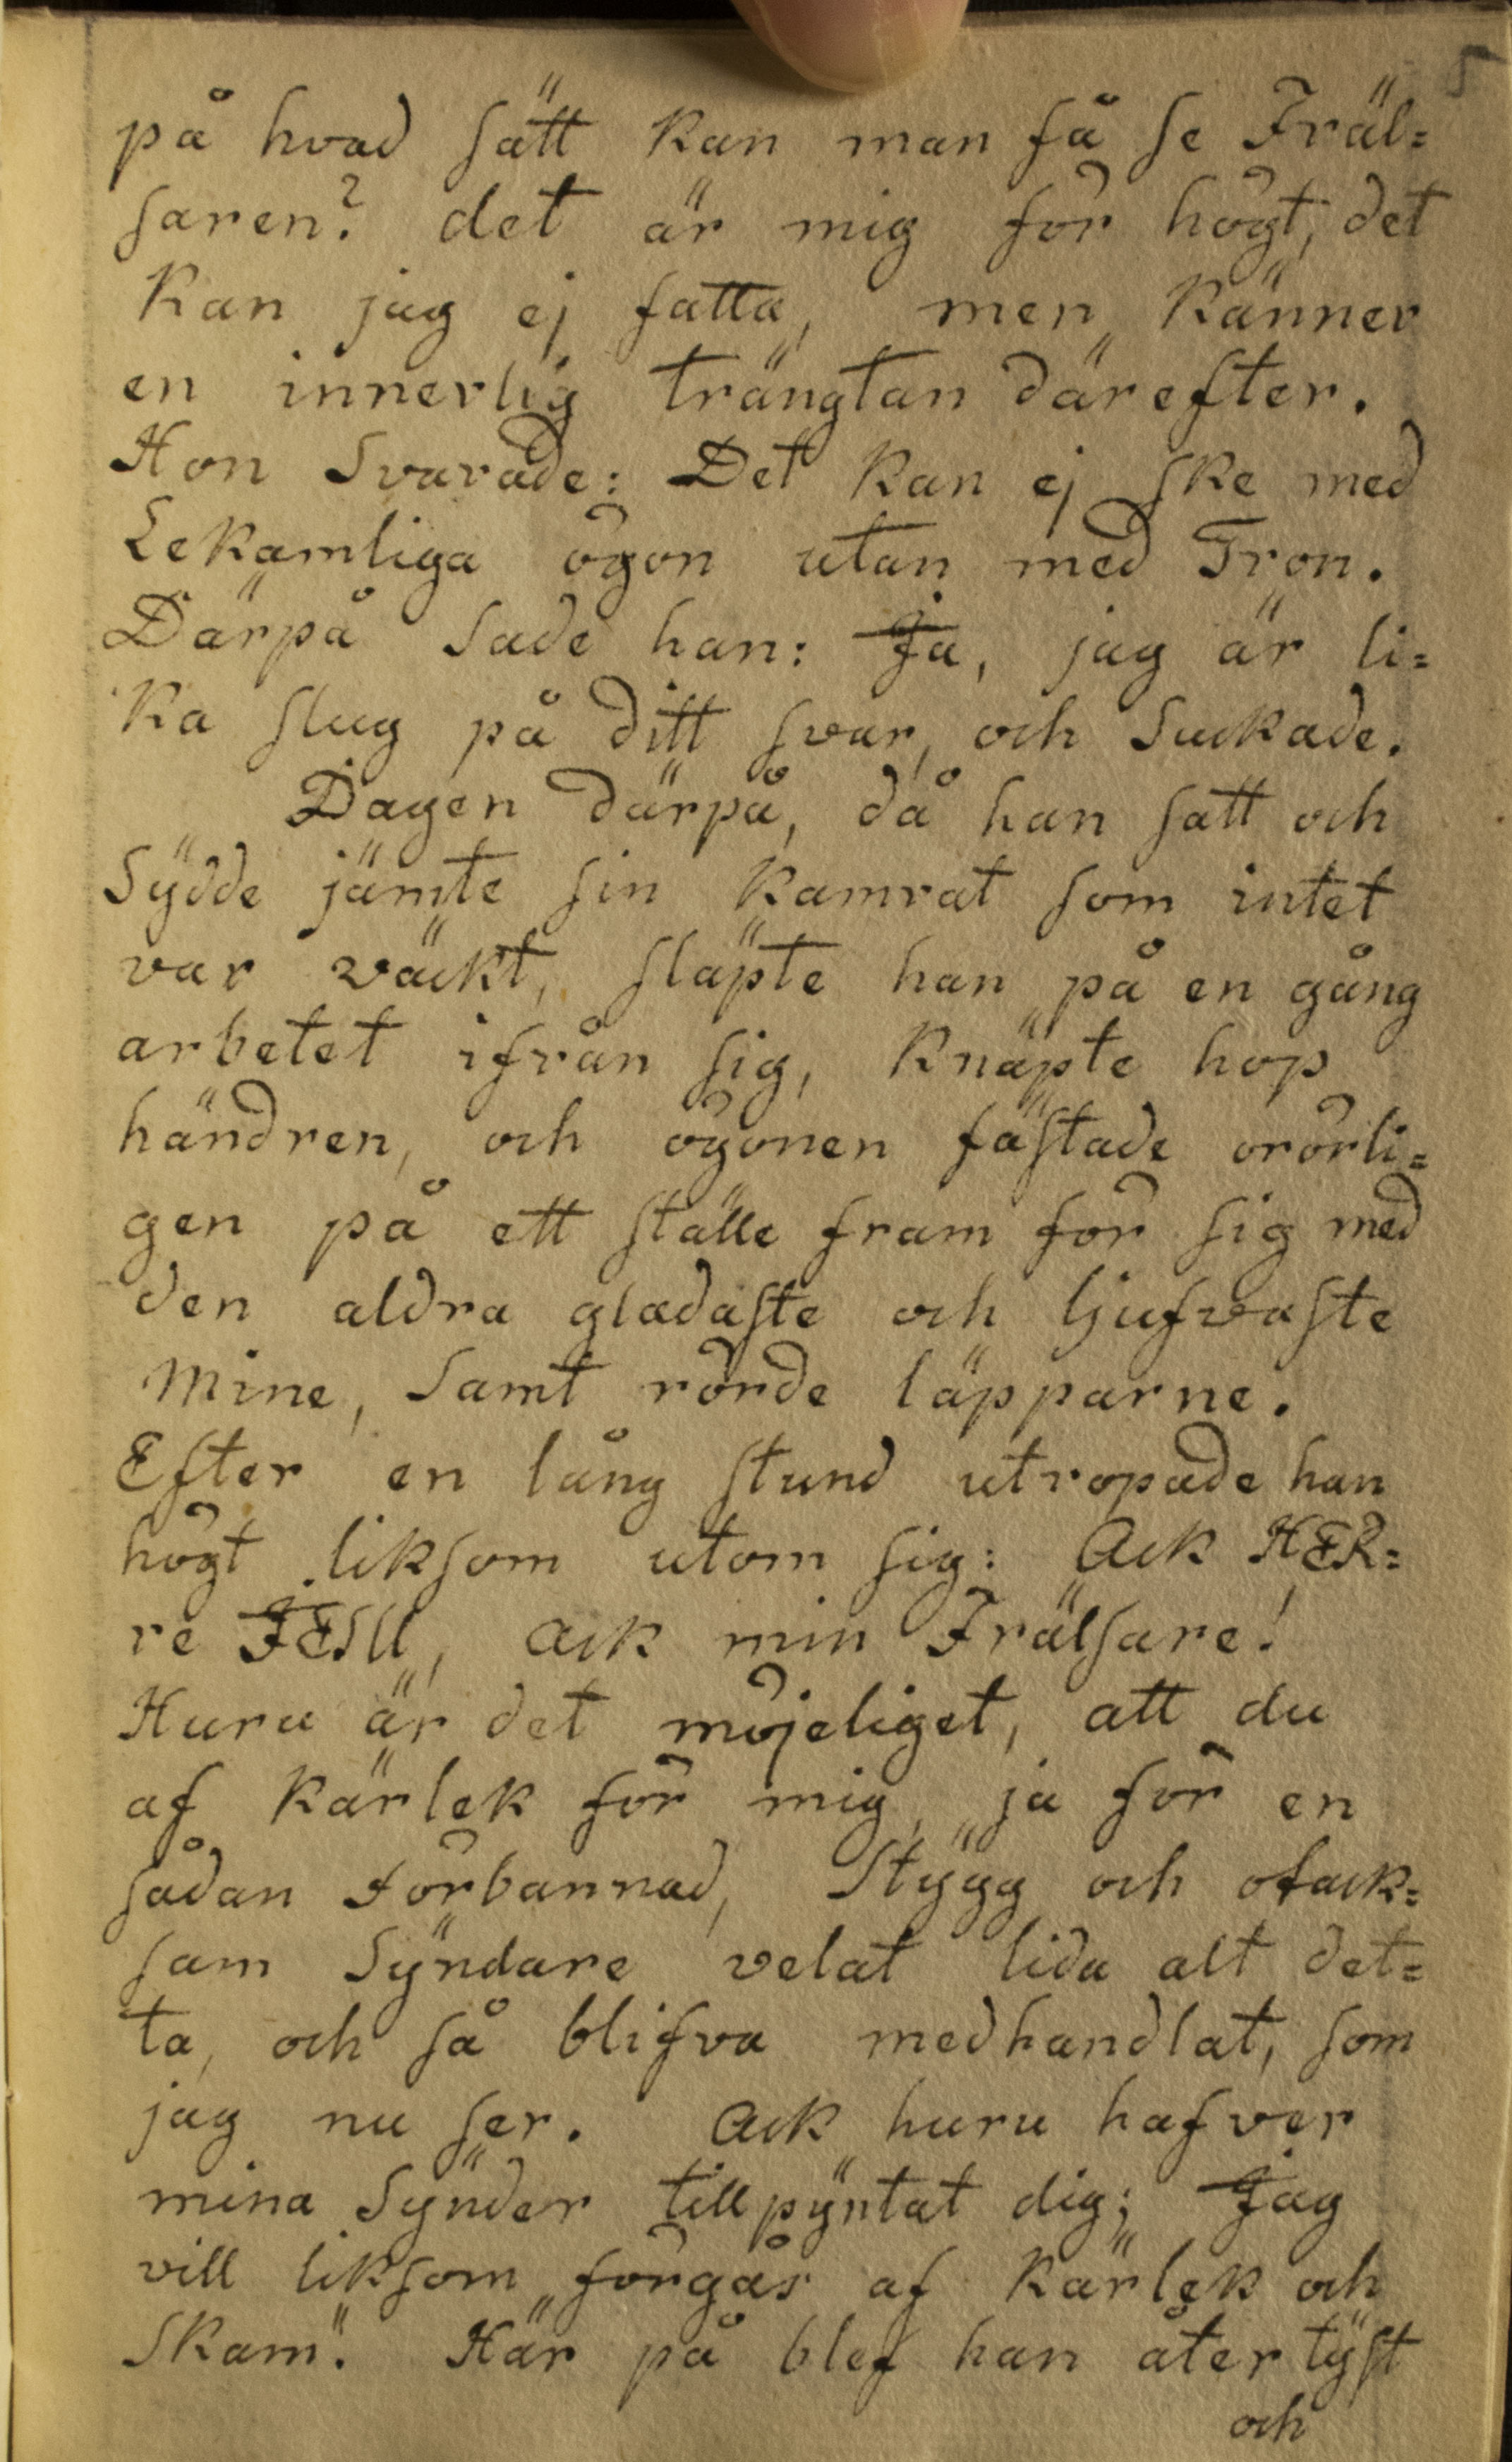 5
på hvad sätt kan man få se Fräl=
saren? det är mig för högt, det
kan jag ej fatta, men känner
en innerlig trängtan därefter.
Hon svarade: Det kan ej ske med
Lekamliga ögon utan med Tron.
Därpå sade han: Ja, jag är li=
ka slug på ditt svar, och suckade.
Dagen därpå, då han satt och
sÿdde jämte sin kamrat som intet
var väckt, släpte han på en gång
arbetet ifrån sig, knäpte hop
händren, och ögonen fästade orörli=
gen på ett ställe fram för sig med
den aldra gladaste och ljufvaste
mine, samt rörde läpparne.
Efter en lång stund utropade han
högt liksom utom sig: Ack HER=
re JESU, ack min Frälsare!
Huru är det möjeliget, att du
af kärlek för mig, ja för en
sådan Förbannad, stÿgg och otack=
sam sÿndare velat lida alt det=
ta, och så blifva medhandlat, som
jag nu ser. Ack huru hafver
mina sÿnder tillpÿntat dig; Jag
vill liksom förgås af kärlek och
skam". Här på blef han åter tÿst
och